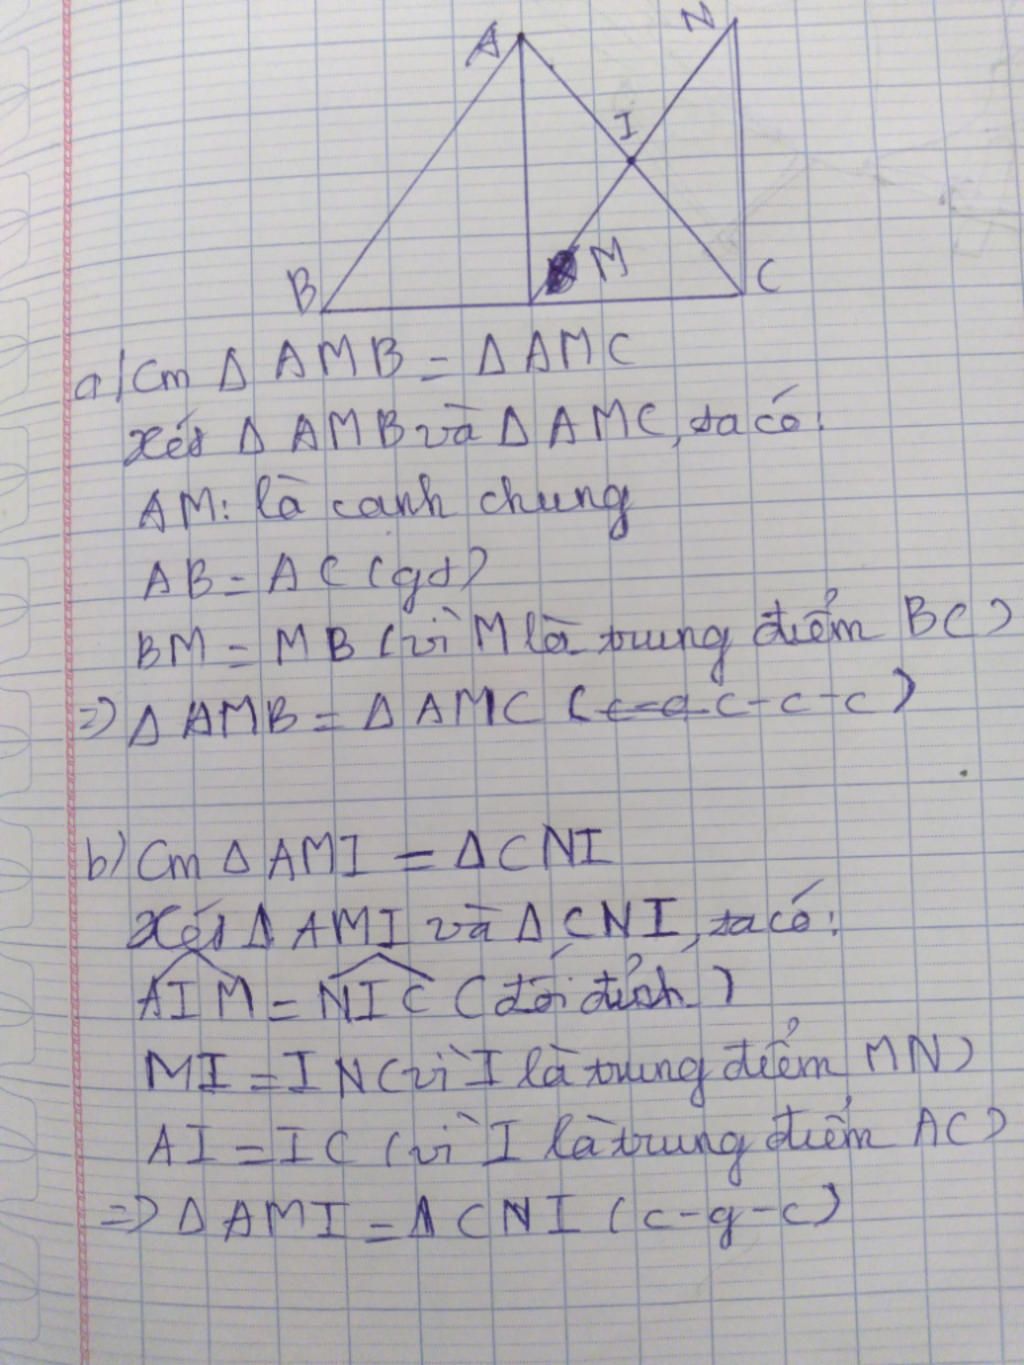 A
N
I
B
M
C
a/ Cm Δ AMB = Δ AMC
Xét Δ AMB và Δ AMC, ta có:
AM: là canh chung
AB = AC (gt)
BM = MB (vì M là trung điểm BC)
=> Δ AMB = Δ AMC (c-g-c-c-c)
b) Cm Δ AMI = Δ CNI
Xét Δ AMI và Δ CNI, ta có:
AIM = NIC (đối đỉnh)
MI = IN (vì I là trung điểm MN)
AI = IC (vì I là trung điểm AC)
=> Δ AMI = Δ CNI (c-g-c)